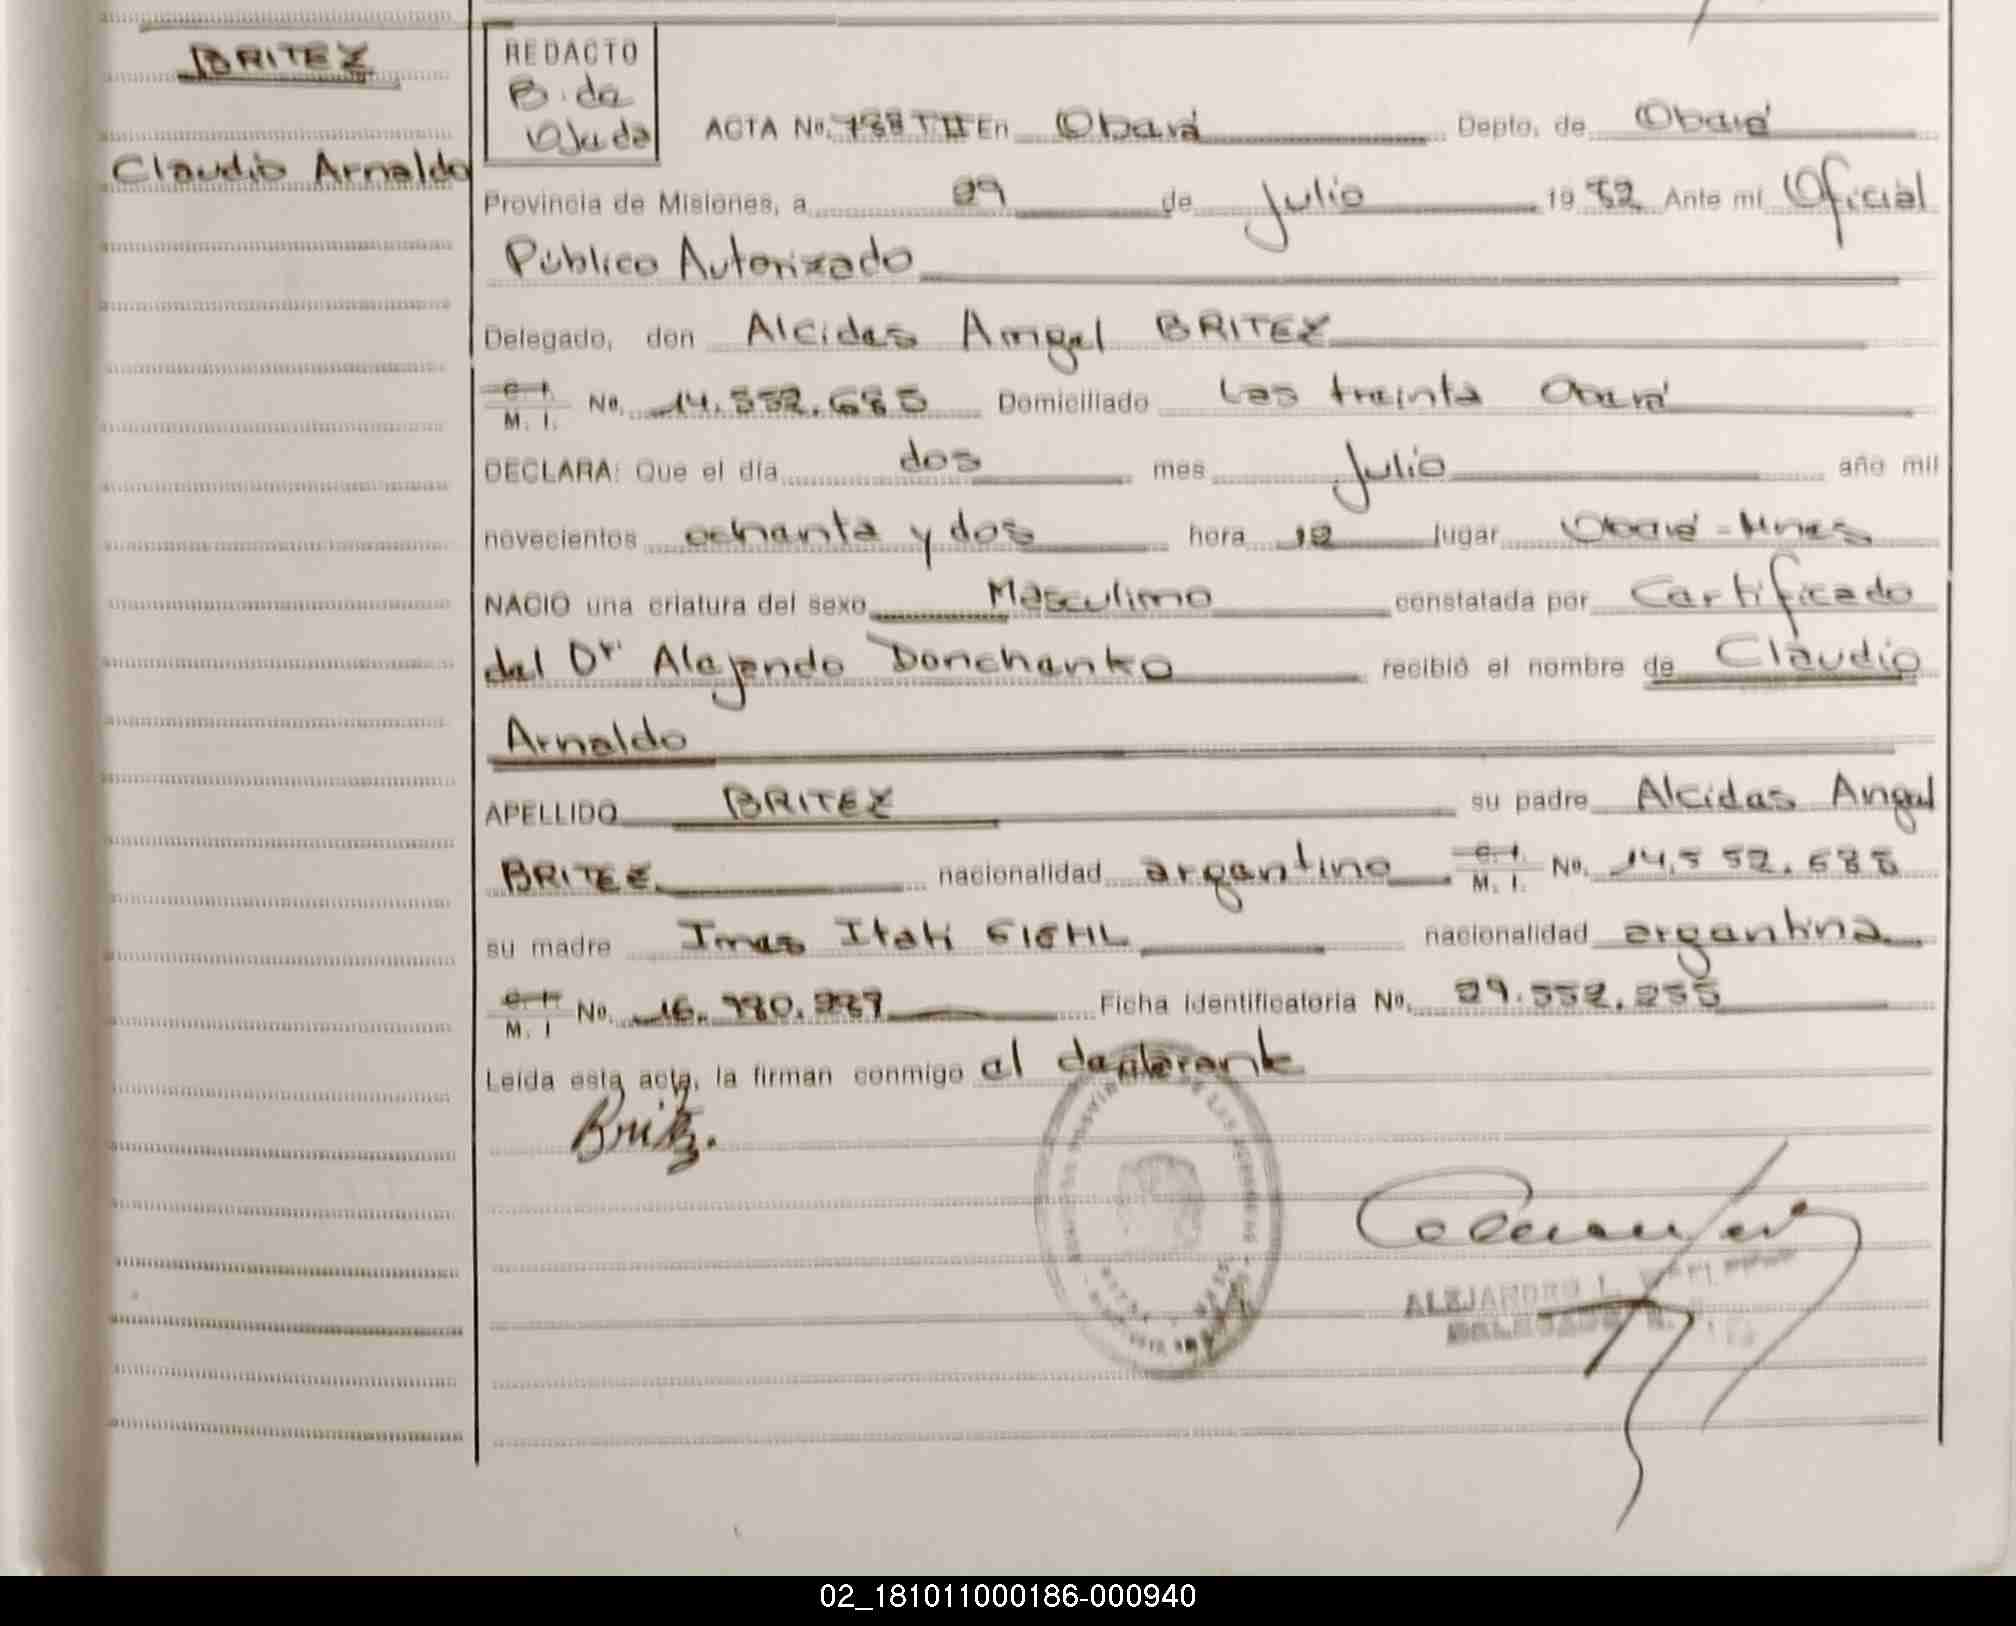 BRITEZ
Claudio Arnaldo
REDACTO
B. da
ACTA No. TII En Oberá Depto, de Oberá
Provincia de Misiones, a 29 de Julio 19 82 Ante mí Oficial
Público Autorizado
Delegado, don Alcides Angel BRITEZ
C. I.
M. I. No. 14.552.685 Domiciliado Las treinta Oberá
DECLARA: Que el día dos mes Julio año mil
novecientos ochenta y dos hora 12 lugar Oberá - Mnes
NACIO una criatura del sexo Masculino constatada por Certificado
del Dr. Alejando Donchenko recibió el nombre de Claudio
Arnaldo
APELLIDO BRITEZ su padre Alcides Angel
BRITEZ nacionalidad argentino C. I. M. I. No. 14.552.685
su madre Ines Itatí nacionalidad argentina
C. I.
M. I No. Ficha identificatoria No. 29.552.255
Leída esta acta, la firman conmigo el declarante
Britez.
ALEJANDRO L.
DELEGADO
02_181011000186-000940